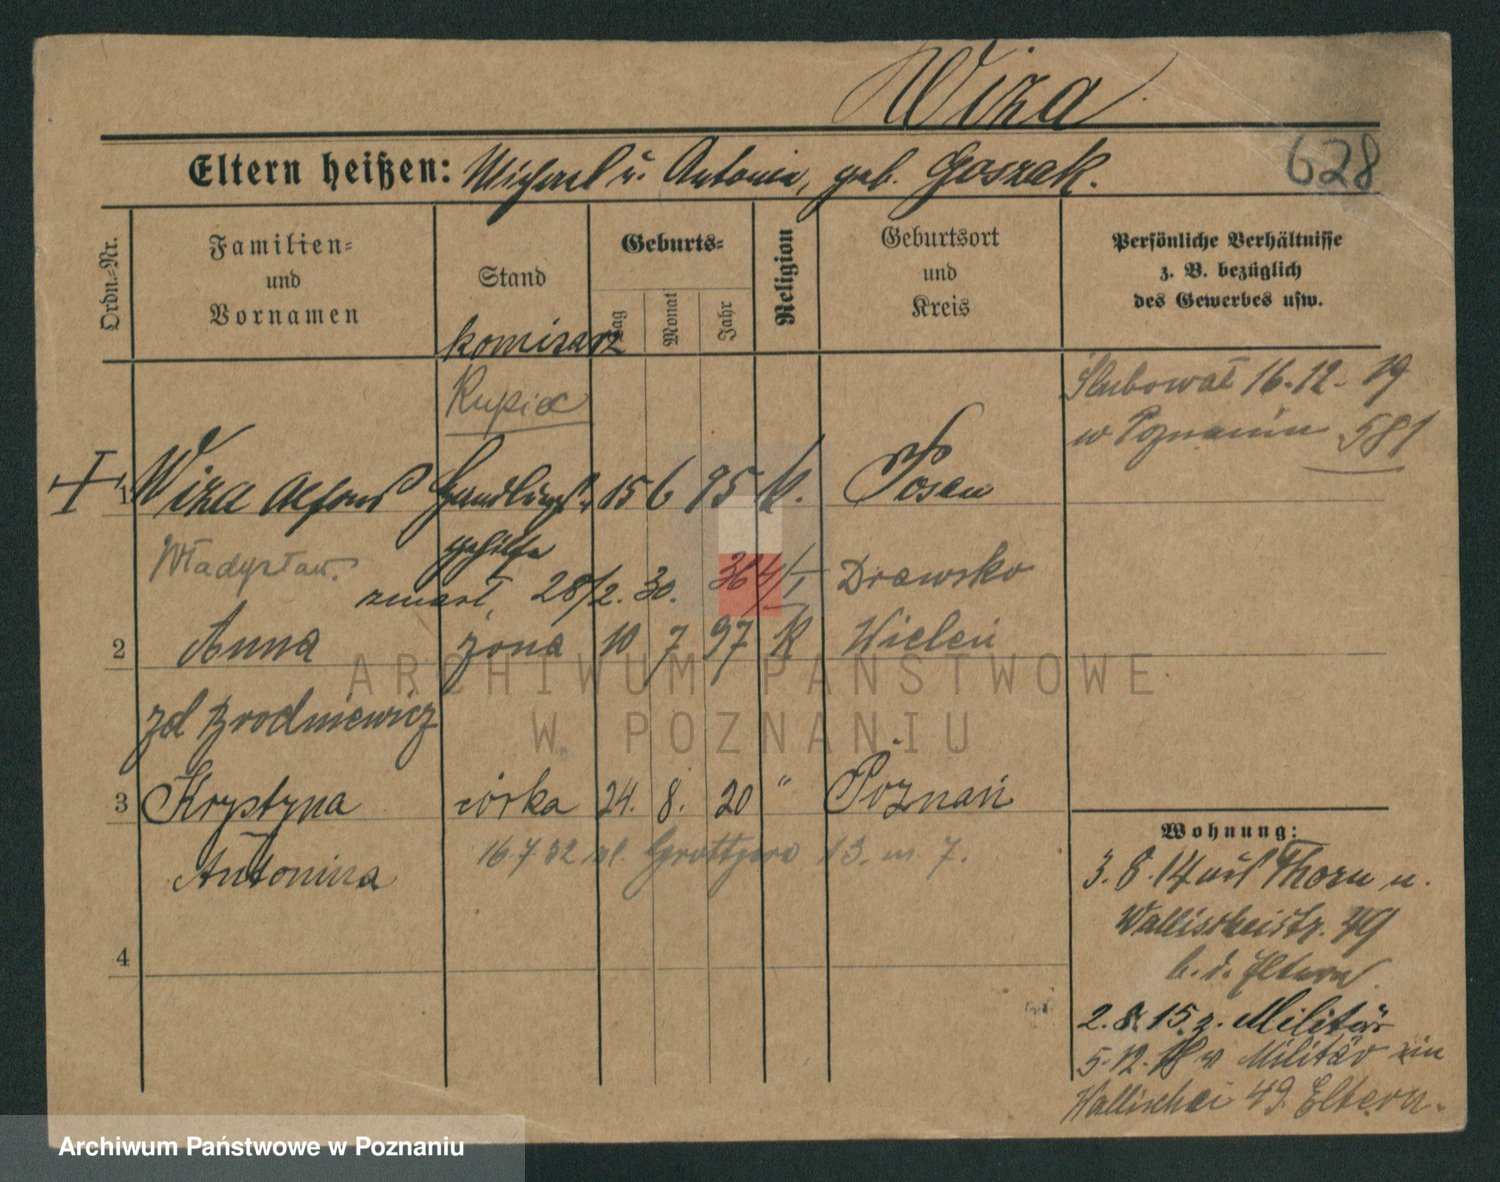 Wiza
Eltern heißen: Michael u. Antonie, geb. Goszak.
628
Ordn.=Nr.
Familien=
und
Vornamen
Stand
Geburts=
Tag
Monat
Jahr
Religion
Geburtsort
und
Kreis
Persönliche Verhältnisse
z. B. bezüglich
des Gewerbes usw.
komisarz
Kupiec
Slubował 16.12.19
w Poznaniu 581
1 Wiza Alfons Handlungs 15 6 95 K. Posen
gehilfe
Władysław.
zmarł, 28/2. 30. Drawsko
2 Anna żona 10 7 97 K Wieleń
zd Brodniewicz
3 Krystyna córka 24. 8. 20 " Poznań
Antonina
16 7 32 ul. Grottgera 13. m. 7.
4
Wohnung:
3. 8. 14 auß Thorn n.
Wallischeistr. 49
b. d. Eltern
2. 8. 15 z. Militär
5. 12. 18 v Militär in
Wallischei 49 Eltern.
ARCHIWUM PAŃSTWOWE
W POZNANIU
Archiwum Państwowe w Poznaniu